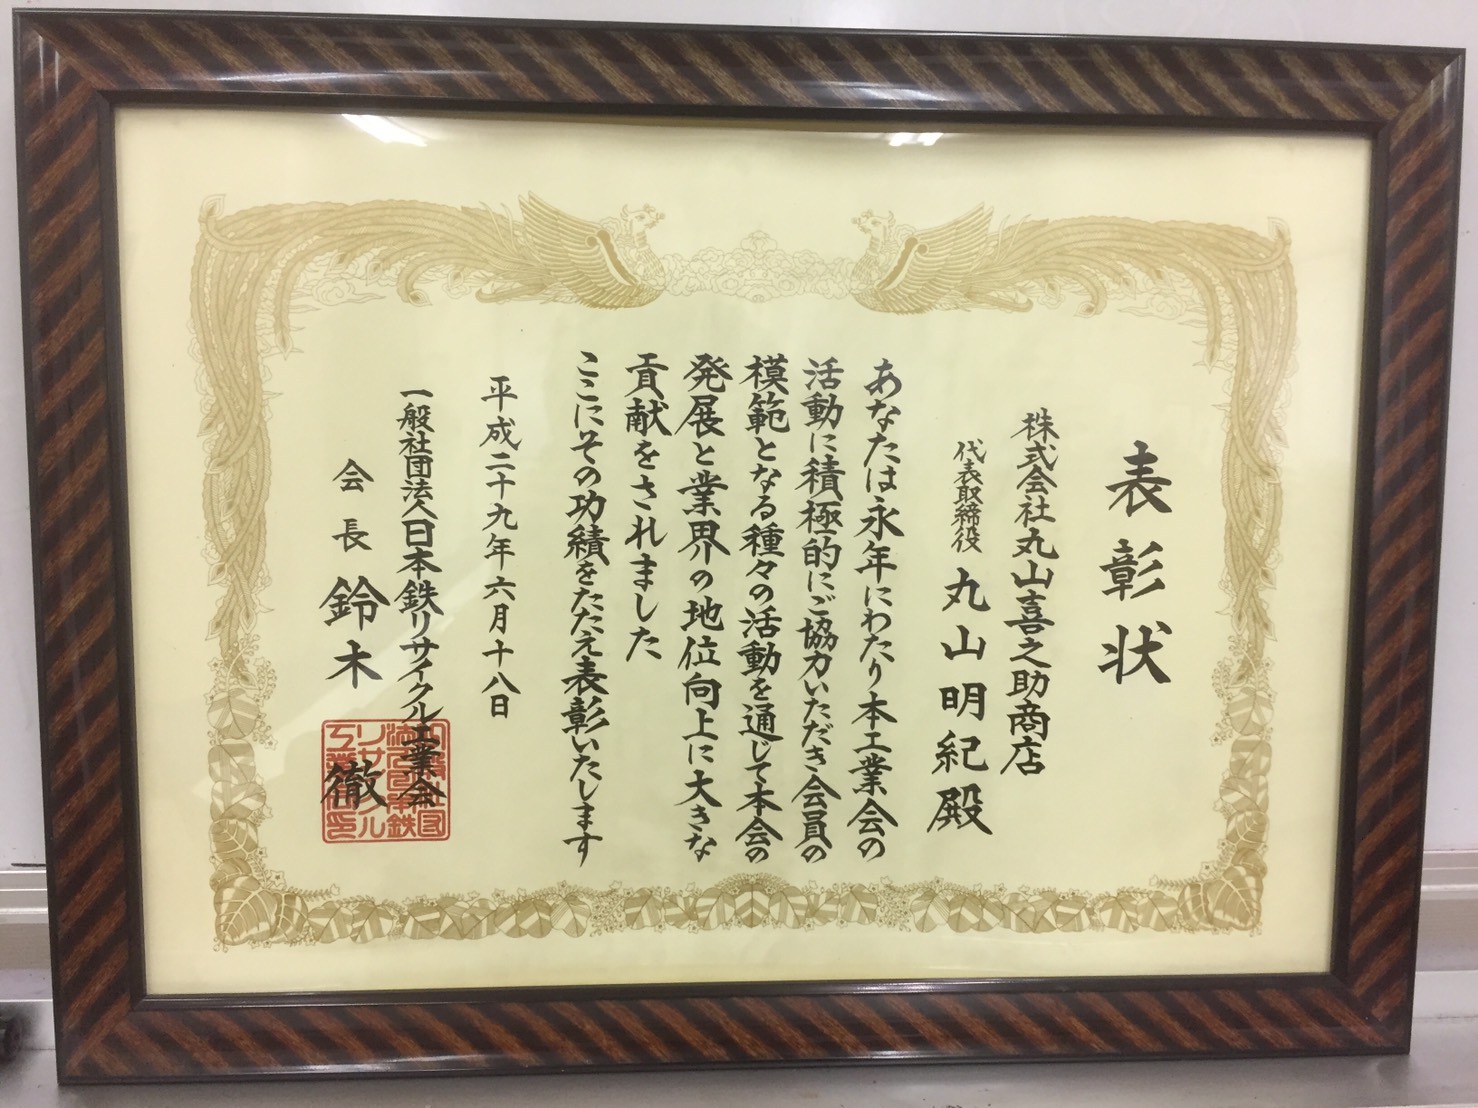 表彰状
株式会社丸山喜之助商店
代表取締役 丸山明紀殿
あなたは永年にわたり本工業会の
活動に積極的にご協力いただき会員の
模範となる種々の活動を通じて本会の
発展と業界の地位向上に大きな
貢献をされました
ここにその功績をたたえ表彰いたします
平成二十九年六月十八日
一般社団法人日本鉄リサイクル工業会
会長 鈴木徹